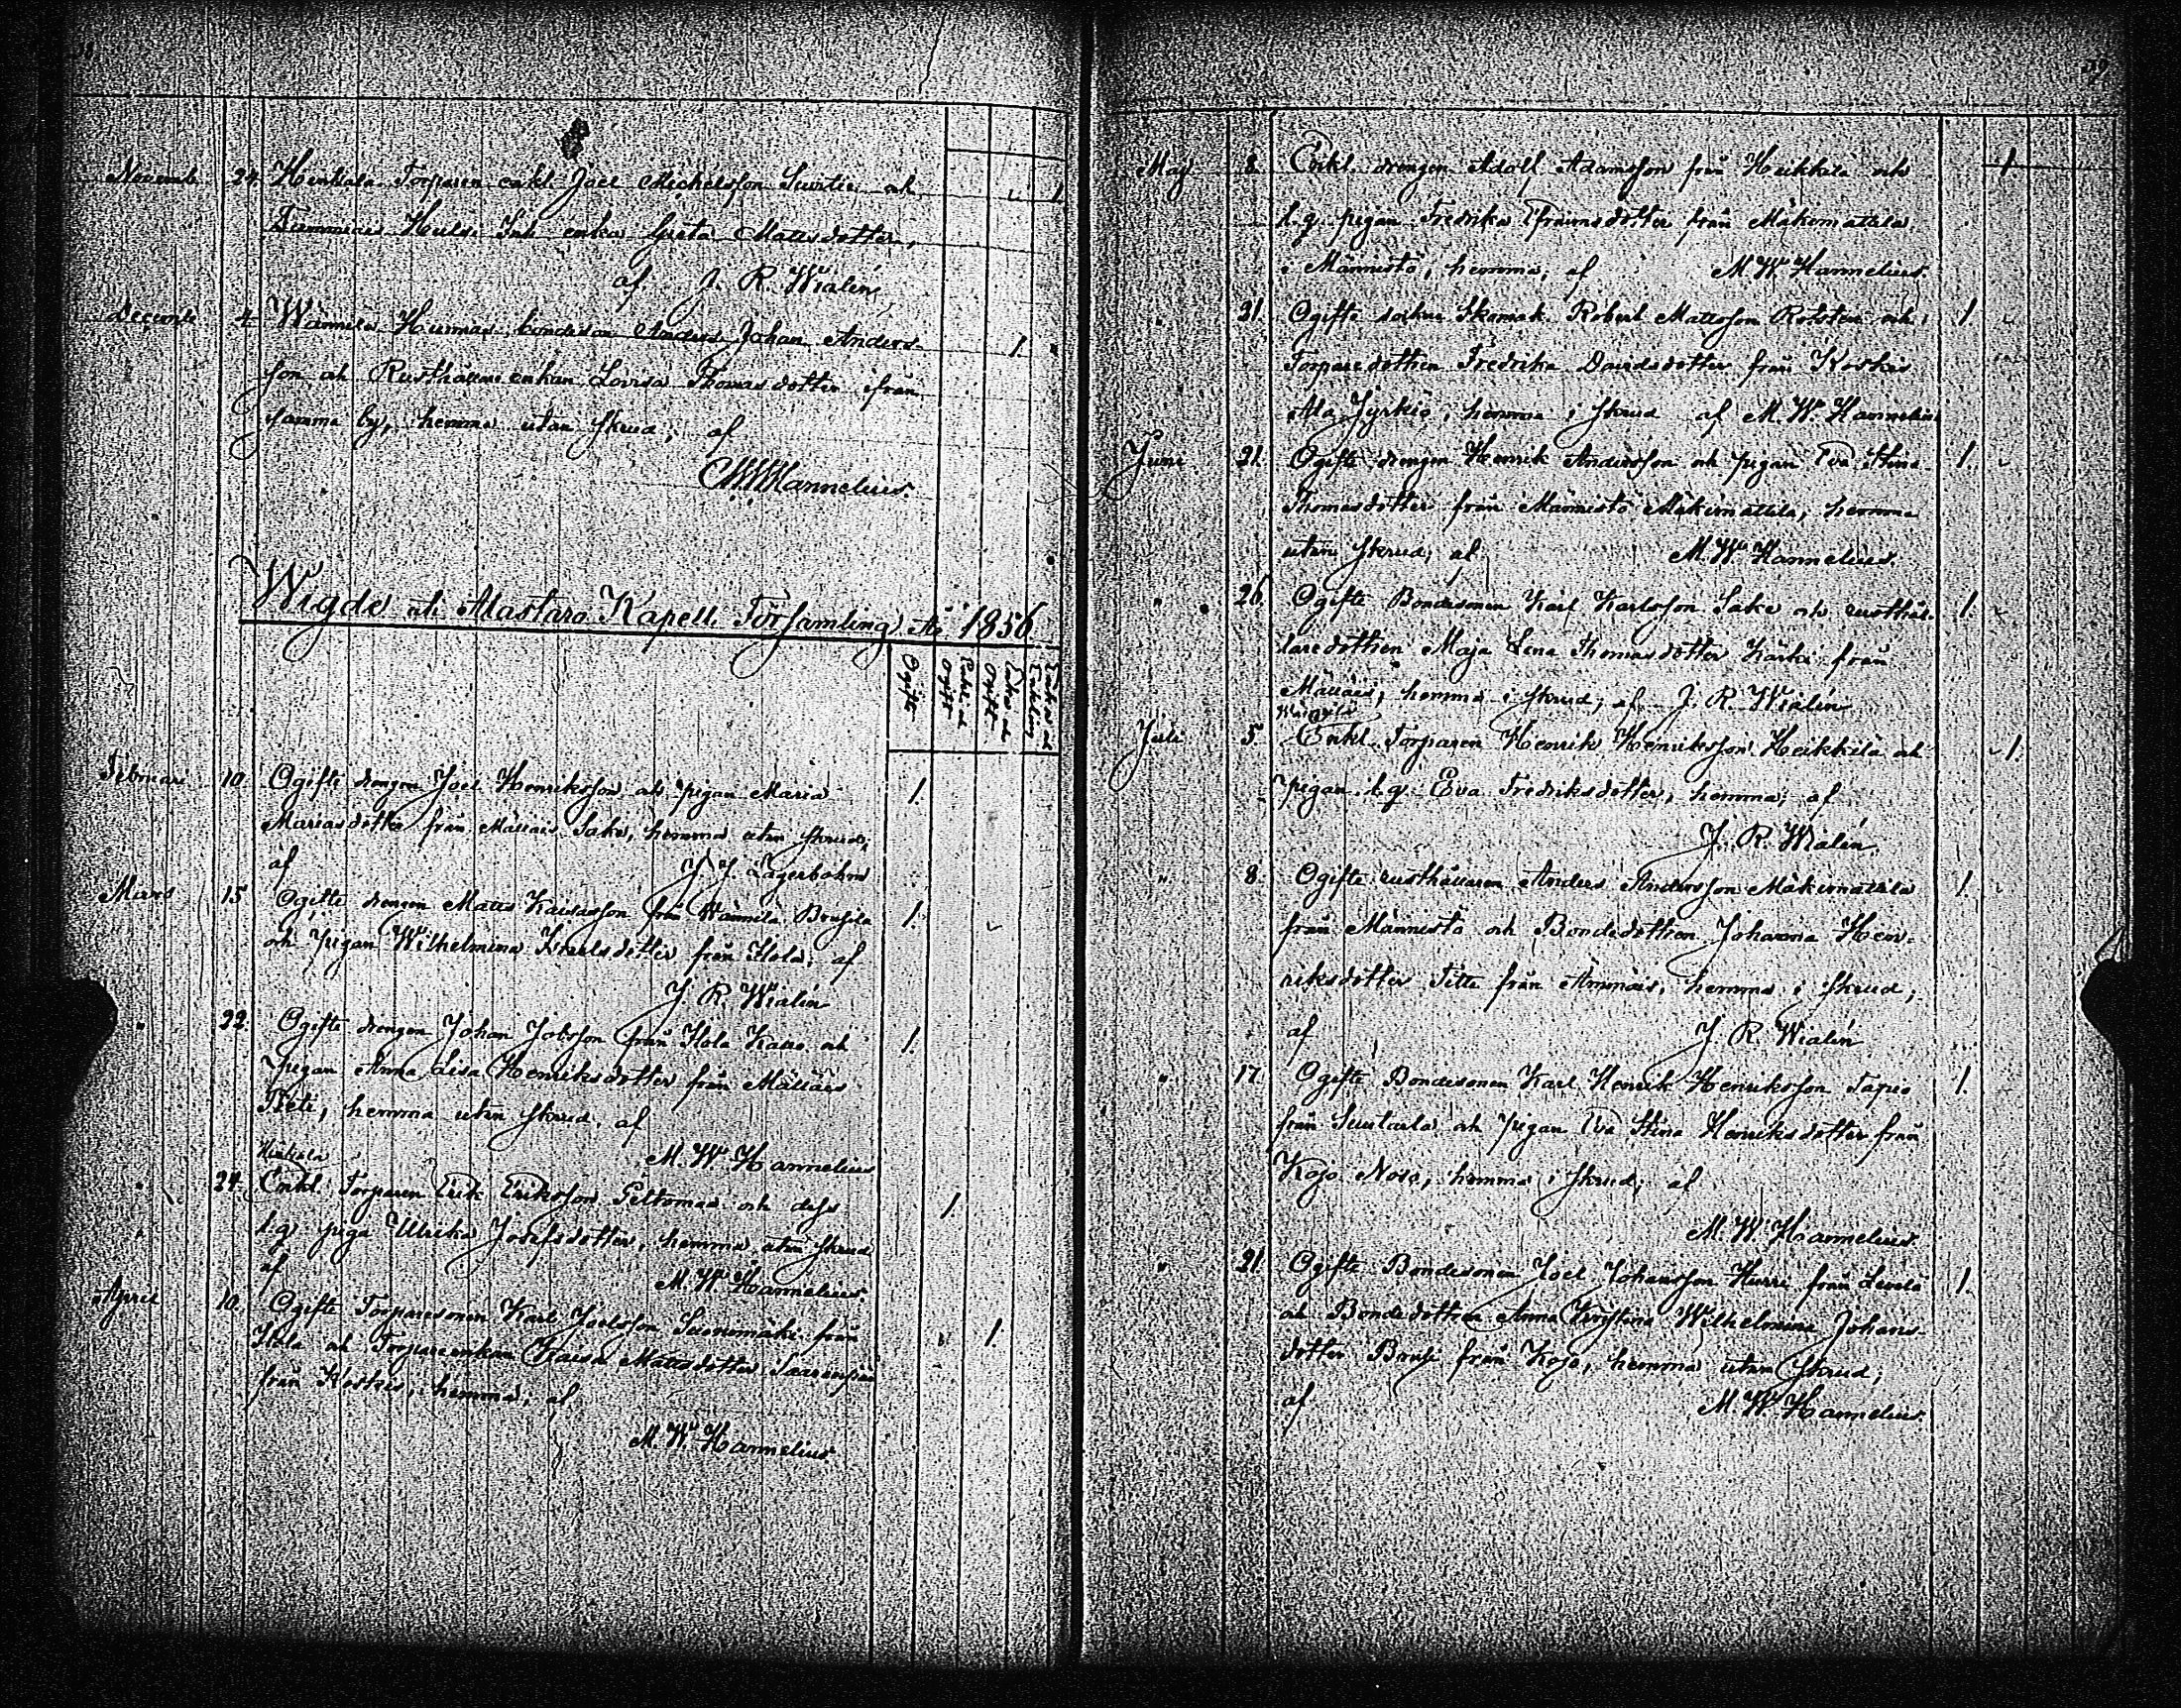 Novemb. 24. Hinkala Torparen enkl. Joel Michelsson Suntio och
Tammiais Heilu Juh enka Greta Mattsdotter,
af J. R. Wialén
Decemb. 4 Wännilä Huunas bondeson Anders Johan Anders- 1.
son och Rusthållare enkan Lovisa Thomasdotter ifrån
samma by, hemma utan skrud; af
MWHannelius.
Wigde uti Alastaro Kapell Församling År 1856
Ogifte
Enkl. o. Ogift
Enka och Ogift
Enka och Enkling
Februari 10. Ogifte drengen Joel Henriksson och pigan Maria 1.
Mariasdotter från Mälläis Sako, hemma utan skrud;
af J. J. Lagerbohm
Mars 15 Ogifte drengen Matts Kaisasson från Wännilä Brusila 1.
och pigan Wilhelmina Israelsdotter från Hola, af
J. R. Wialén
" 22. Ogifte drengen Johan Jobsson från Hola Kauro och 1.
pigan Anna Lisa Henriksdotter från Mälläis
Pleti, hemma utan skrud, af
M. W. Hannelius
Hinkala
" 24. Enkl. Torparen Erik Eriksson Peltomaa och dess 1.
l.q. piga Ulrika Josefsdotter, hemma utan skrud
af M. W. Hannelius.
April 10. Ogifte Torparesonen Karl Joelsson Suonomäki från 1.
Hola och Torpareenkan Kaisa Mattsdotter Saarenpää
från Koskis, hemma; af
M. W. Hannelius
29
Maj 8. Enkl. drengen Adolf Adamsson från Heikkilä och 1
l.q. pigan Fredrika Efraimsdotter från Mäkimattila
i Männistö, hemma, af M. W. Hannelius.
" 21. Ogifte sockne Skomak. Robert Mattsson Rolsten och 1.
Torparedottren Fredrika Davidsdotter från Koskis
Ala Jyrkiö, hemma i skrud af M. W. Hannelius
Juni 21. Ogifte drengen Henrik Andersson och pigan Eva Stina 1.
Thomasdotter från Männistö Mäkimattila, hemma
utan skrud; af M. W. Hannelius.
" 26. Ogifte Bondesonen Karl Karlsson Sako och rusthål- 1.
laredottren Maja Lena Thomasdotter Kärki från
Mälläis, hemma i skrud; af J. R. Wialén
Wännilä
Juli 5 Enkl. Torparen Henrik Henriksson Heikkilä och 1.
pigan l.q. Eva Fredriksdotter, hemma; af
J. R. Wialén.
" 8. Ogifte rusthållaren Anders Andersson Mäkimattila 1.
från Männistö och Bondedottren Johanna Hen-
riksdotter Titte från Ammäis, hemma i skrud;
af J. R. Wialén
" 17. Ogifte Bondesonen Karl Henrik Henriksson Tapio 1.
från Suutarla och pigan Eva Stina Henriksdotter från
Kojo Nose, hemma i skrud; af
M. W. Hannelius.
" 21. Ogifte Bondesonen Joel Johansson Hurri från Levälä 1.
och Bondedottren Anna Kristina Wilhelmina Johans-
dotter Brusi från Kojo, hemma utan skrud;
af M. W. Hannelius.